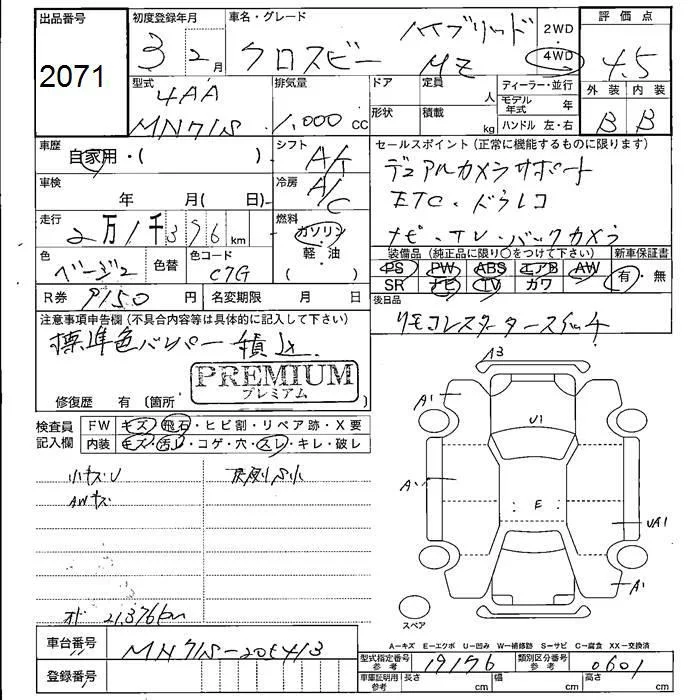 出品番号 2071
初度登録年月 3 2月
車名・グレード クロスビー ハイブリッド MZ
2WD 4WD
評価点 4.5
外装 内装
B B
型式 4AA MN71S
排気量 1,000 CC
ドア 定員 人
形状 積載 kg
ディーラー・並行
モデル年式 年
ハンドル 左・右
車歴 自家用・( )
シフト A/
車検 年 月( 日)
冷房 A/C
走行 2万1千376km
燃料 ガソリン 軽・油 ( )
色 ベージュ 色替 色コード C7G
R券 名変期限 月 日
セールスポイント(正常に機能するものに限ります)
デュアルカメラサポート
ETC・ドラレコ
ナビ・TV・バックカメラ
装備品(純正品に限り○をつけて下さい) 新車保証書
PS PW ABS エアB AW 有・無
SR ナビ TV カワ
後日品
リモコンスタータースイッチ
注意事項申告欄(不具合内容等は具体的に記入して下さい)
標準色バンパー積込
PREMIUM
プレミアム
修復歴 有 〔箇所 〕
検査員記入欄 FW キズ・飛石・ヒビ割・リペア跡・X要
内装 キズ・汚レ・コゲ・穴・スレ・キレ・破レ
小キズU
AWキズ
オド 21,376km
A3
A1
U1
A
E
UA1
A1
スペア
A=キズ E=エクボ U=凹み W=補修跡 S=サビ C=腐食 XX=交換済
車台番号 MN71S-205413
登録番号
型式指定番号 参考 19176 類別区分番号 参考 0601
車庫証明用 参考 長さ cm 幅 cm 高さ cm